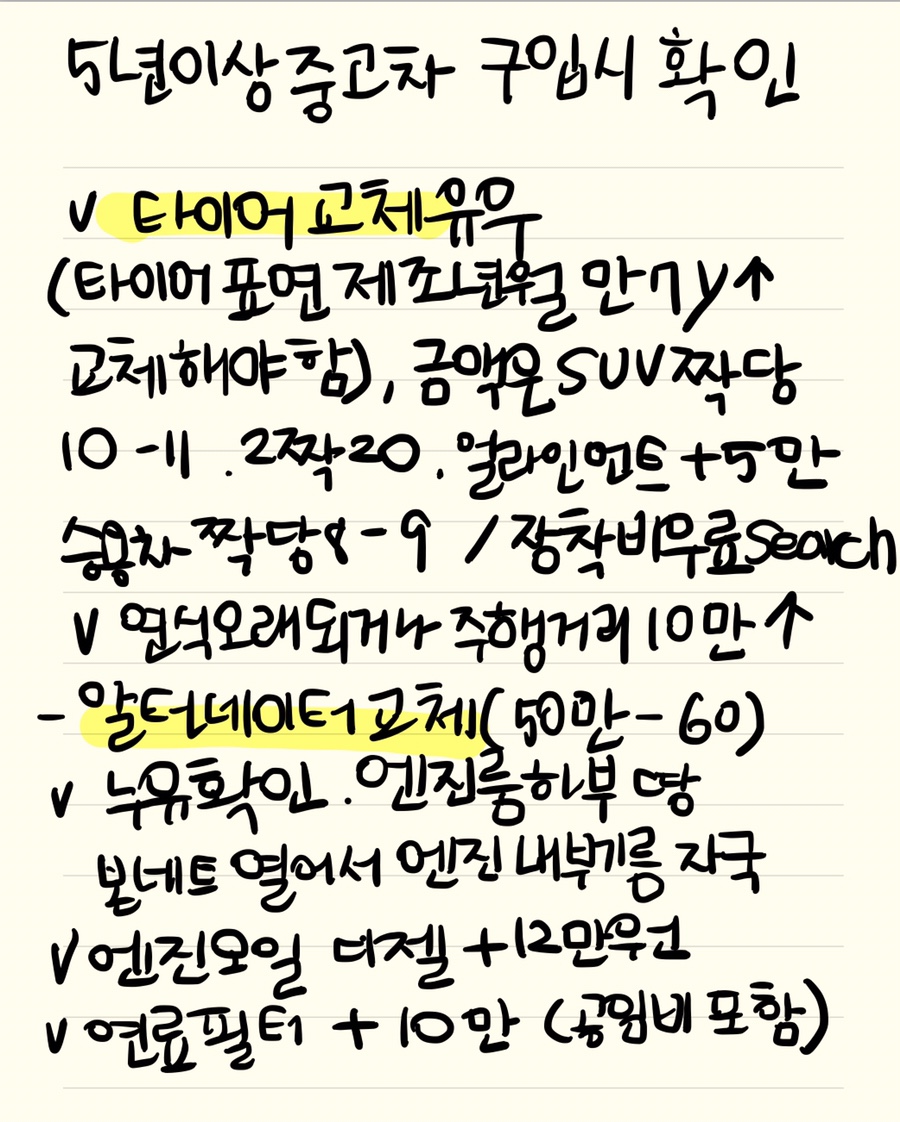 5년이상 중고차 구입시 확인
v 타이어 교체유무
(타이어 표면 제조년월 만 7y↑
교체해야함), 금액은 SUV 짝당
10-11 . 2짝20 . 얼라인먼트 +5만
승용차 짝당 8-9 / 장착비무료 Search
v 연식오래되거나 주행거리 10만↑
- 알터네이터 교체(50만-60)
v 누유확인 . 엔진룸하부 땅
본네트 열어서 엔진 내부기름 자국
v 엔진오일 디젤 +12만원
v 연료필터 + 10만 (공임비 포함)